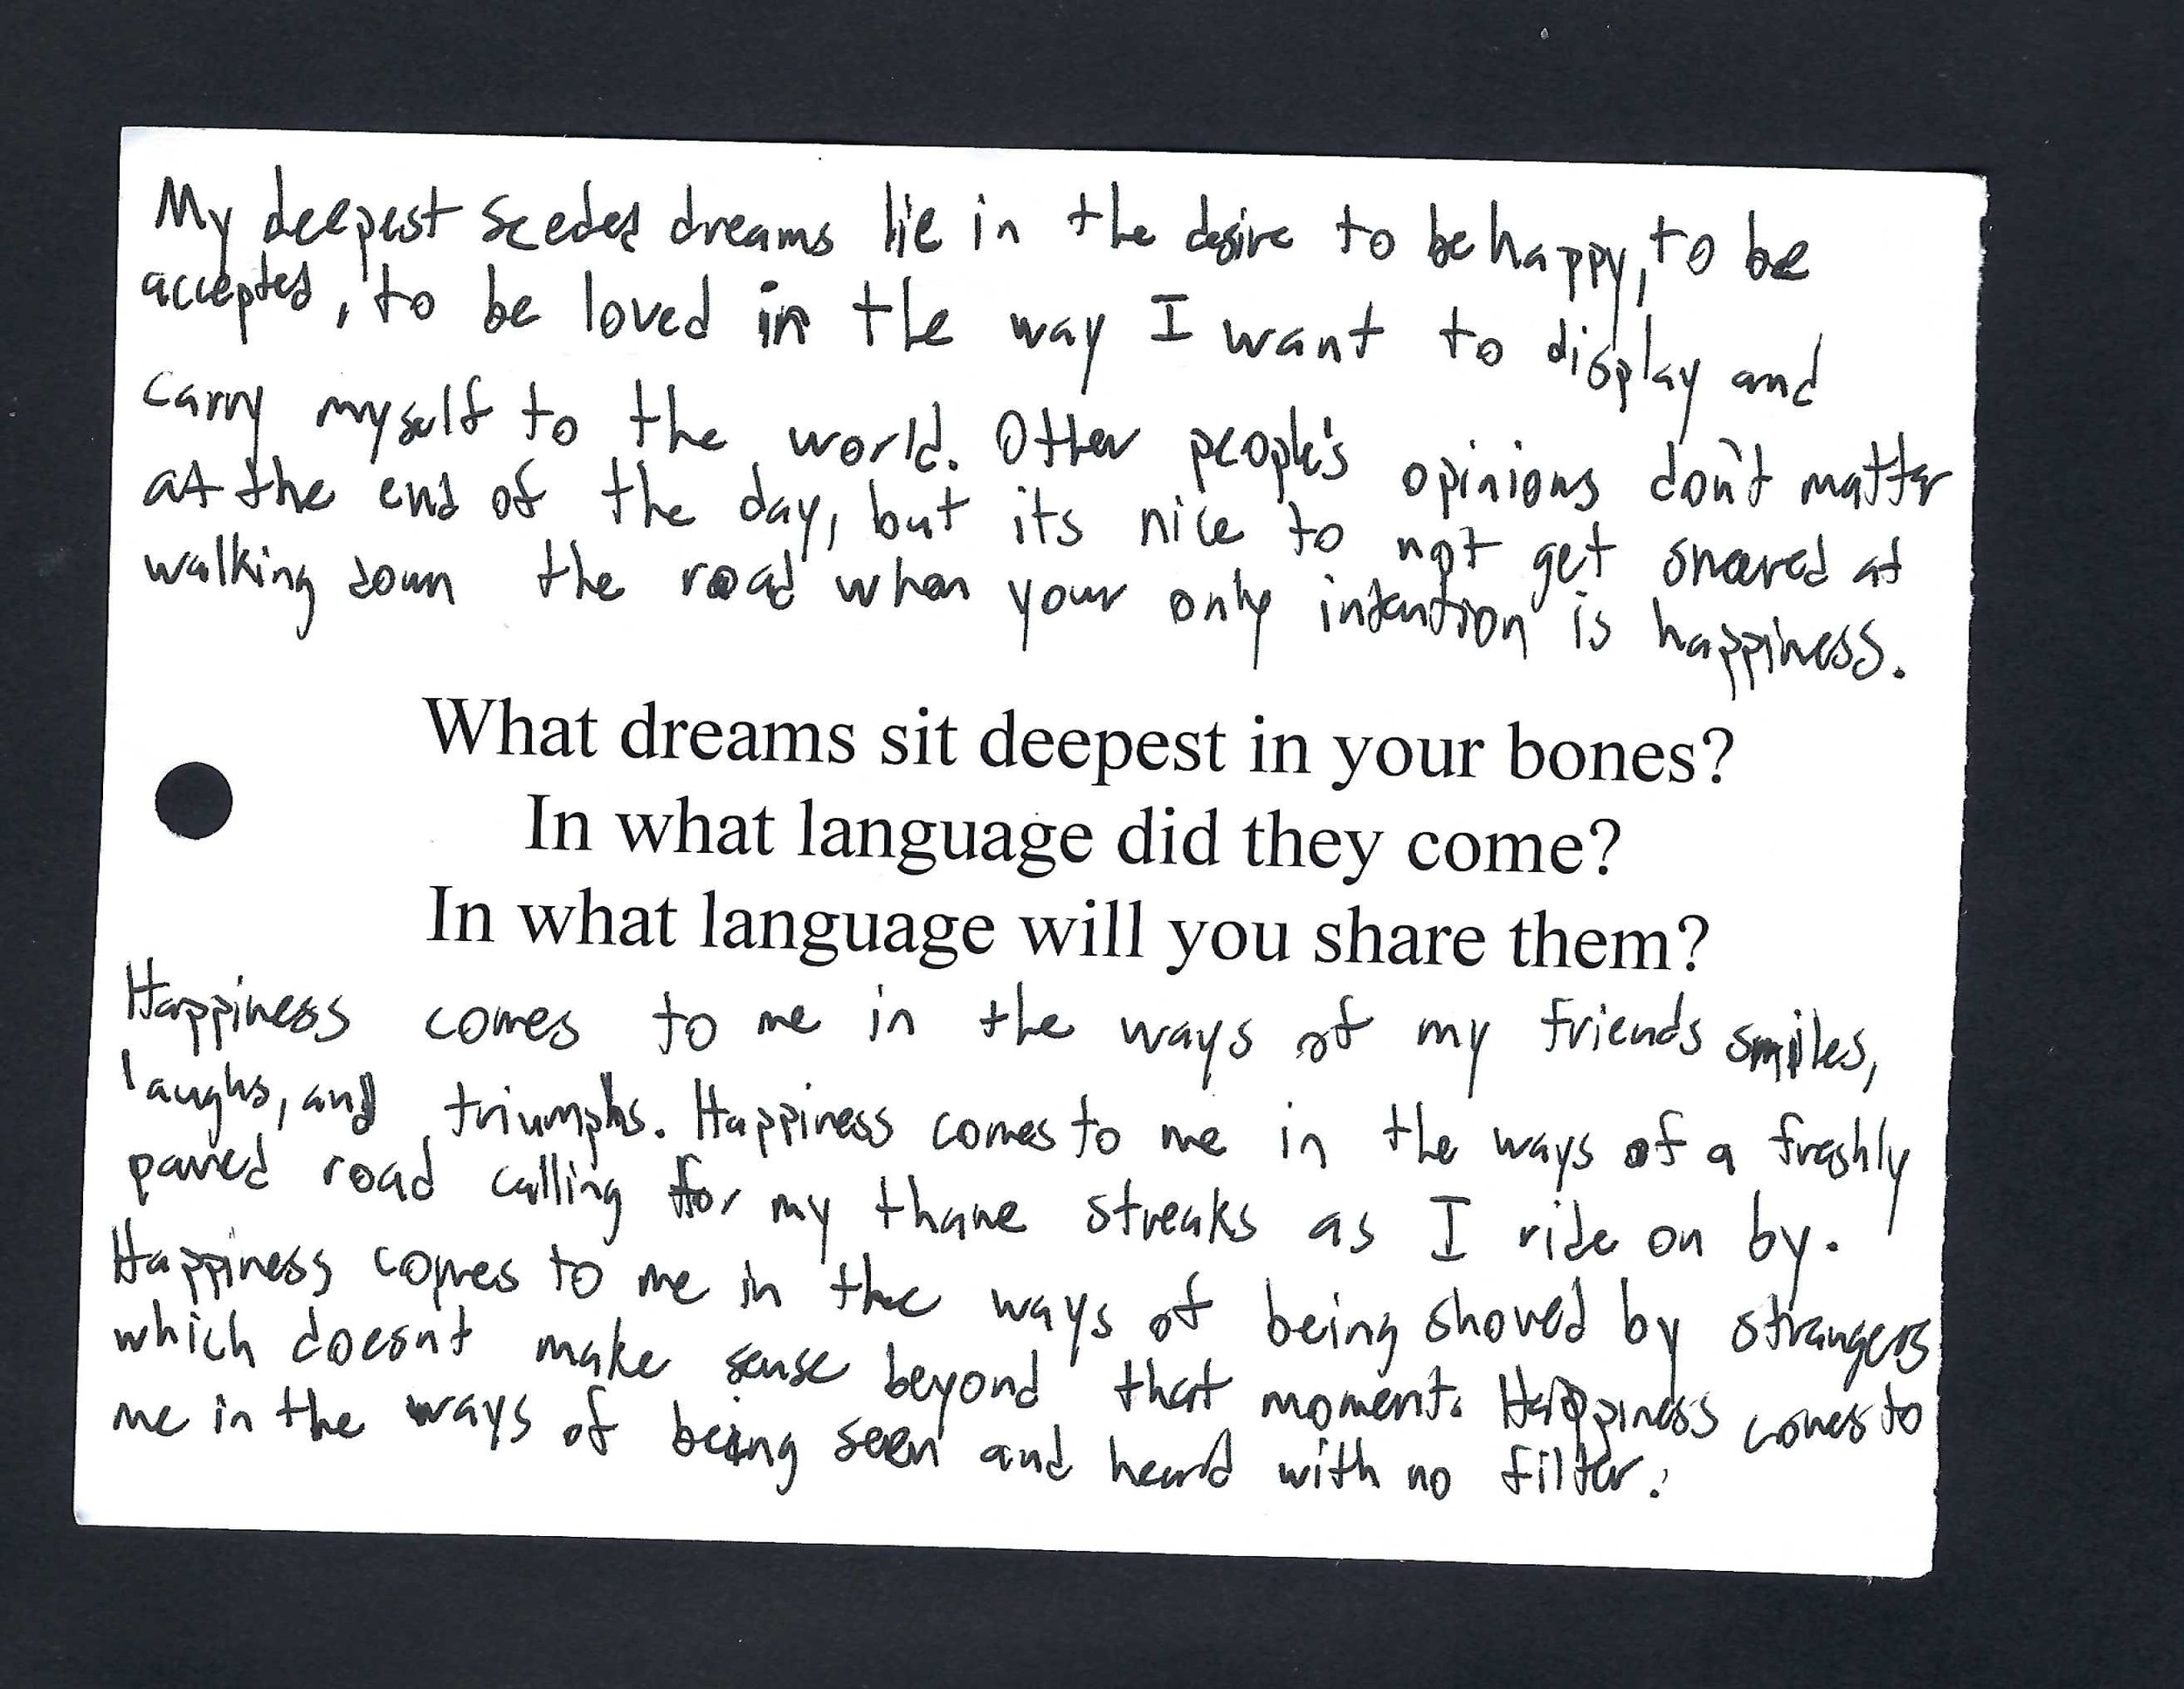 My deepest seeded dreams lie in the desire to be happy, to be
accepted, to be loved in the way I want to display and
carry myself to the world. Other people's opinions don't matter
at the end of the day, but its nice to not get at
walking down the road when your only intention is happiness.
What dreams sit deepest in your bones?
In what language did they come?
In what language will you share them?
Happiness comes to me in the ways of my friends smiles,
laughs, and triumphs. Happiness comes to me in the ways of a freshly
paved road calling for my thane streaks as I ride on by.
Happiness comes to me in the ways of being shoved by strangers
which doesnt make sense beyond that moment. Happiness comes to
me in the ways of being seen and heard with no filter.